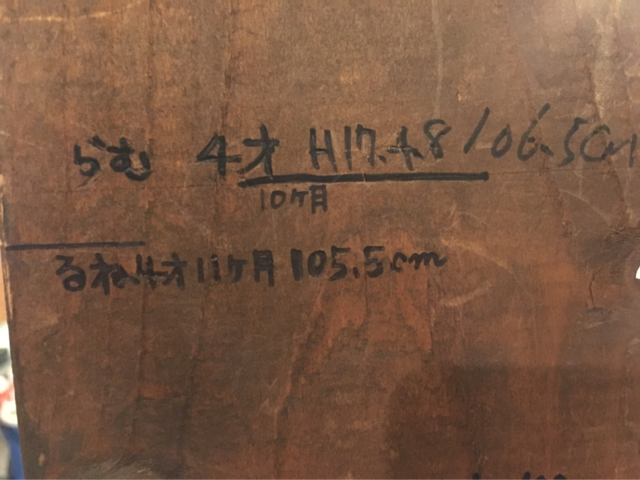 らむ 4才 H17.4.8 106.5cm
10ヶ月
るね 4才11ヶ月 105.5cm